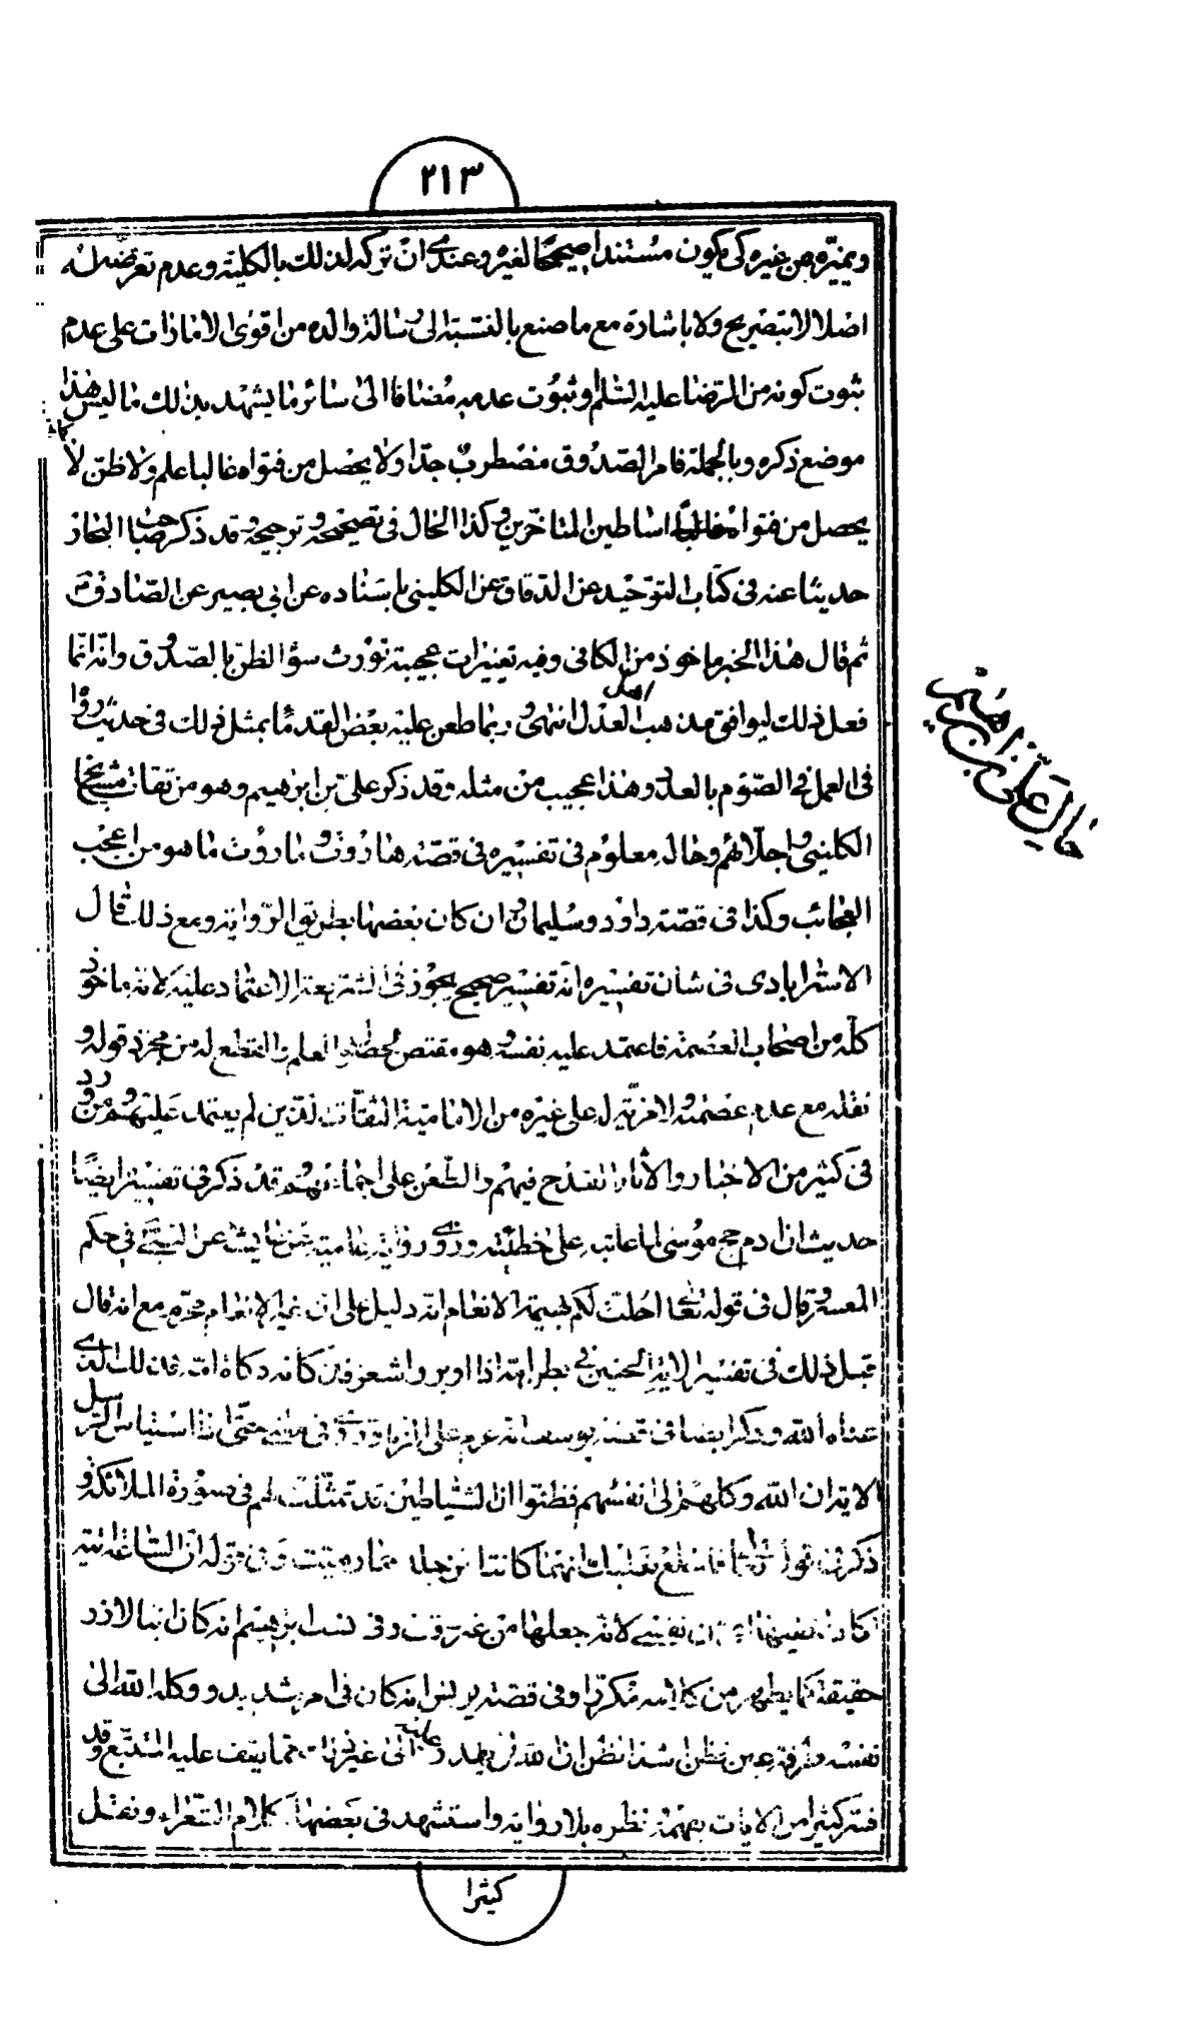 ٢١٣
ويميّزه من غيره كي يكون مستندا صحيحا لغيره وعندي انّ تركه لذلك بالكلية وعدم تعرّضه له
اصلا لا بتصريح ولا باشارة مع ما صنع بالنسبة الى رسالة والده من اقوى الامارات على عدم
ثبوت كونه من الرضا عليه السّلم وثبوت عدمه مضافا الى سائر ما يشهد بذلك مما ليس هذا
موضع ذكره وبالجملة فامر الصّدوق مضطرب جدّا ولا يحصل من فتواه غالبا علم ولا ظن لا
يحصل من فتوا اساطين المتاخّرين وكذا الحال في تصحيحه وترجيحه وقد ذكر صاحب البحار
حديثا عنه في كتاب التوحيد عن الدقاق عن الكليني باسناده عن ابي بصير عن الصّادق ع
ثم قال هذا الخبر ماخوذ من الكافي وفيه تغييرات عجيبة تورث سوء الظن بالصدوق وانّه انّما
فعل ذلك ليوافق مذهب اهل العدل انتهى وربما طعن عليه بعض القدماء بمثل ذلك في حديث رواه
في العمل في الصّوم بالعدد وهذا عجيب من مثله وقد ذكر علي بن ابرهيم وهو من ثقات مشايخ
الكليني واجلّائهم وحاله معلوم في تفسيره في قصّة هاروت وماروت ما هو من اعجب
العجائب وكذا في قصّة داود وسليمان وان كان بعضها بطريق الرّواية ومع ذلك قال
الاسترابادي في شان تفسيره انّه تفسير صحيح يجوز في الشريعة الاعتماد عليه لانه ماخوذ
كلّه من اصحاب العصمة فاعتمد عليه بنفسه وهو مقتض لحصول العلم والقطع له من مجرّد قوله و
نقله مع عدم عصمته ولا مزيّة له على غيره من الامامية الثقات الذين لم يعتمد عليهم وورد
في كثير من الاخبار والاثار القدح فيهم والطّعن على اجماعهم وقد ذكر في تفسيره ايضا
حديث ان ادم حج موسى لما عاتبه على خطيئته وروى رواية عامية عن عايشة عن النبي في حكم
المعسر وقال في قوله تعالى احلت لكم بهيمة الانعام انه دليل على ان غير الانعام محرّم مع انه قال
قبل ذلك في تفسير الاية الجنين في بطن امّه اذا اوبر واشعر فذكاته ذكاة امّه فذلك الذي
عناه الله وذكر ايضا في قصّة يوسف انه عزم على الزنا وروى في حتى اذا استياس الرّسل
الاية ان الله وكلهم الى انفسهم فظنّوا ان الشياطين قد تمثّلت لهم في صورة الملائكة و
ذكر في قوله تعالى فاخلع نعليك انهما كانتا من جلد حمار ميت وفي قوله انّ السّاعة اتية
اكاد اخفيها من نفسي لانه جعلها من غير وقت وفي نسب ابرهيم انه كان ابنا لازر
حقيقة كما يظهر من كلامه مكرّرا وفي قصّة يونس انه كان في امر شديد ووكله الله الى
نفسه طرفة عين فظن اشدّ الظن ان الله لن يقدر عليه الى غير ذلك ممّا يقف عليه المتتبّع وقد
فسّر كثيرا من الايات بمجرّد نظره بلا رواية واستشهد في بعضها بكلام الشعراء ونقل
كثيرا
حال علي بن ابرهيم